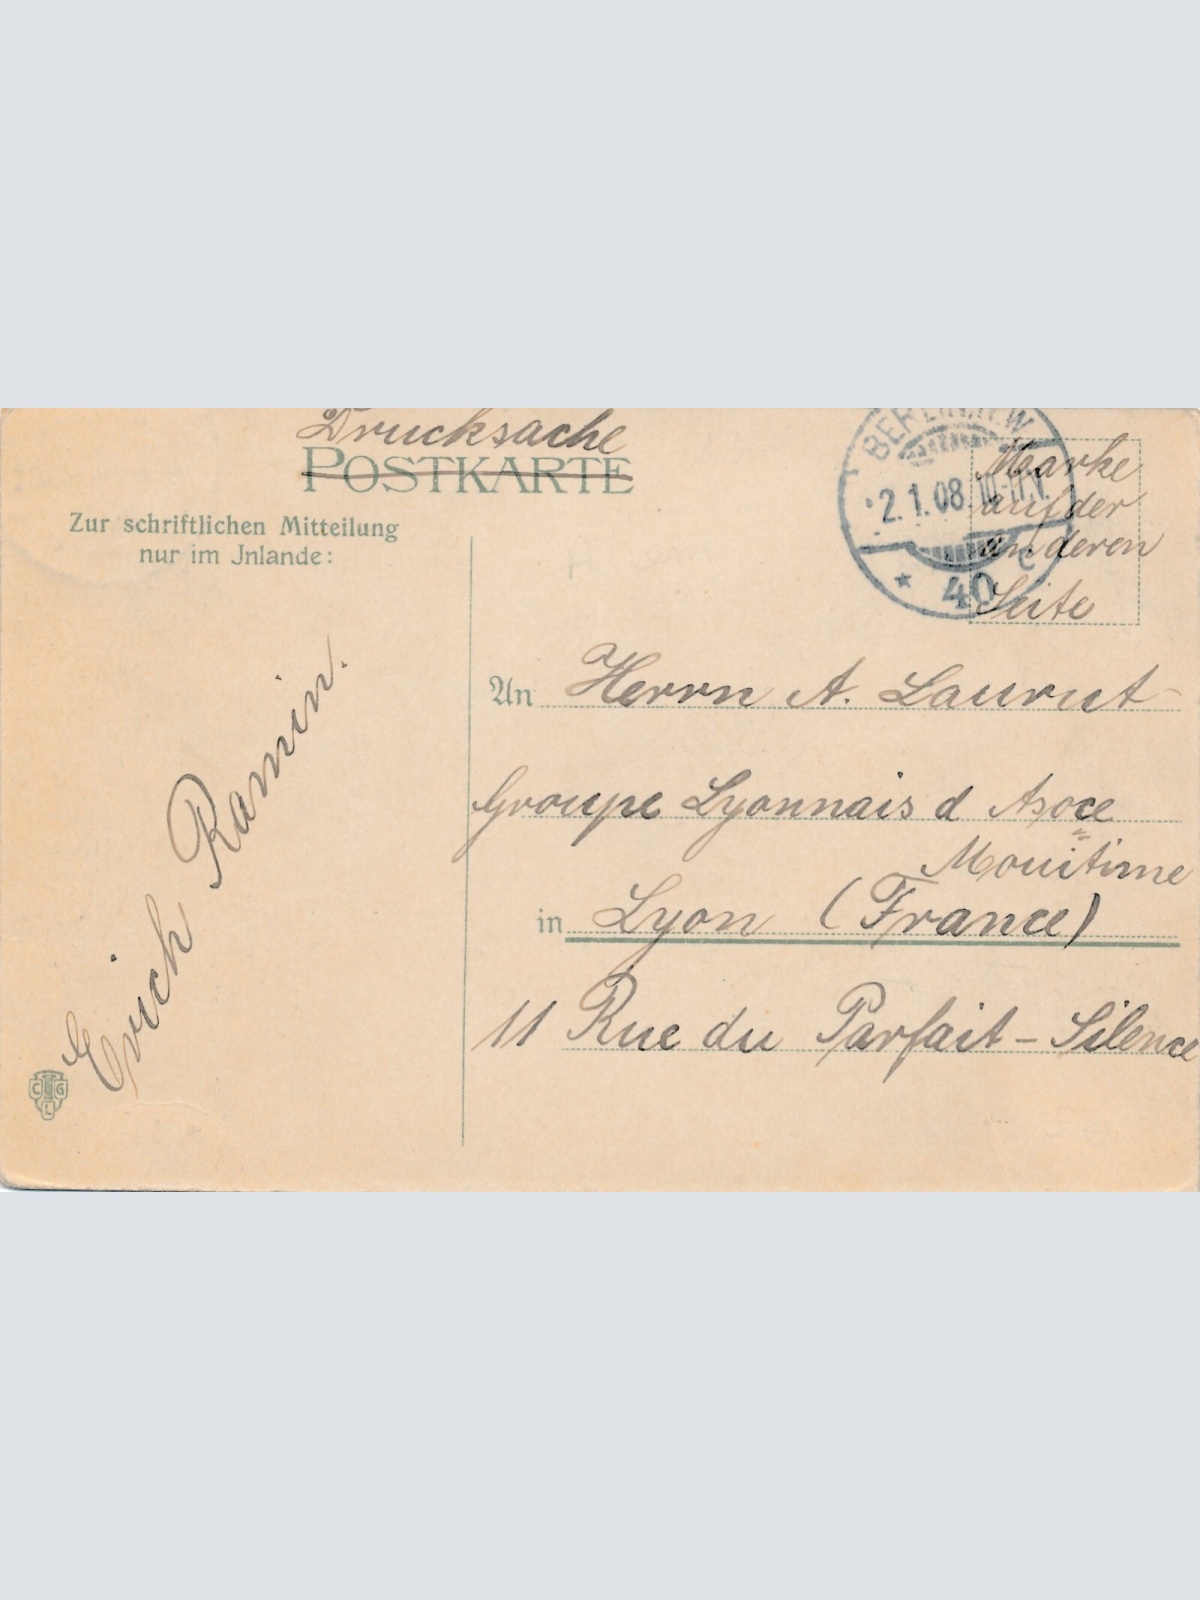 Drucksache
POSTKARTE
Zur schriftlichen Mitteilung
nur im Jnlande:
BERLIN N.W.
2.1.08. 10-11V.
* 40 c
Marke
auf der
anderen
Seite
An Herrn A. Laurut
Groupe Lyonnais d Asoce
Mouitime
in Lyon (France)
11 Rue du Parfait-Silence
Erich Ramin.
C G L